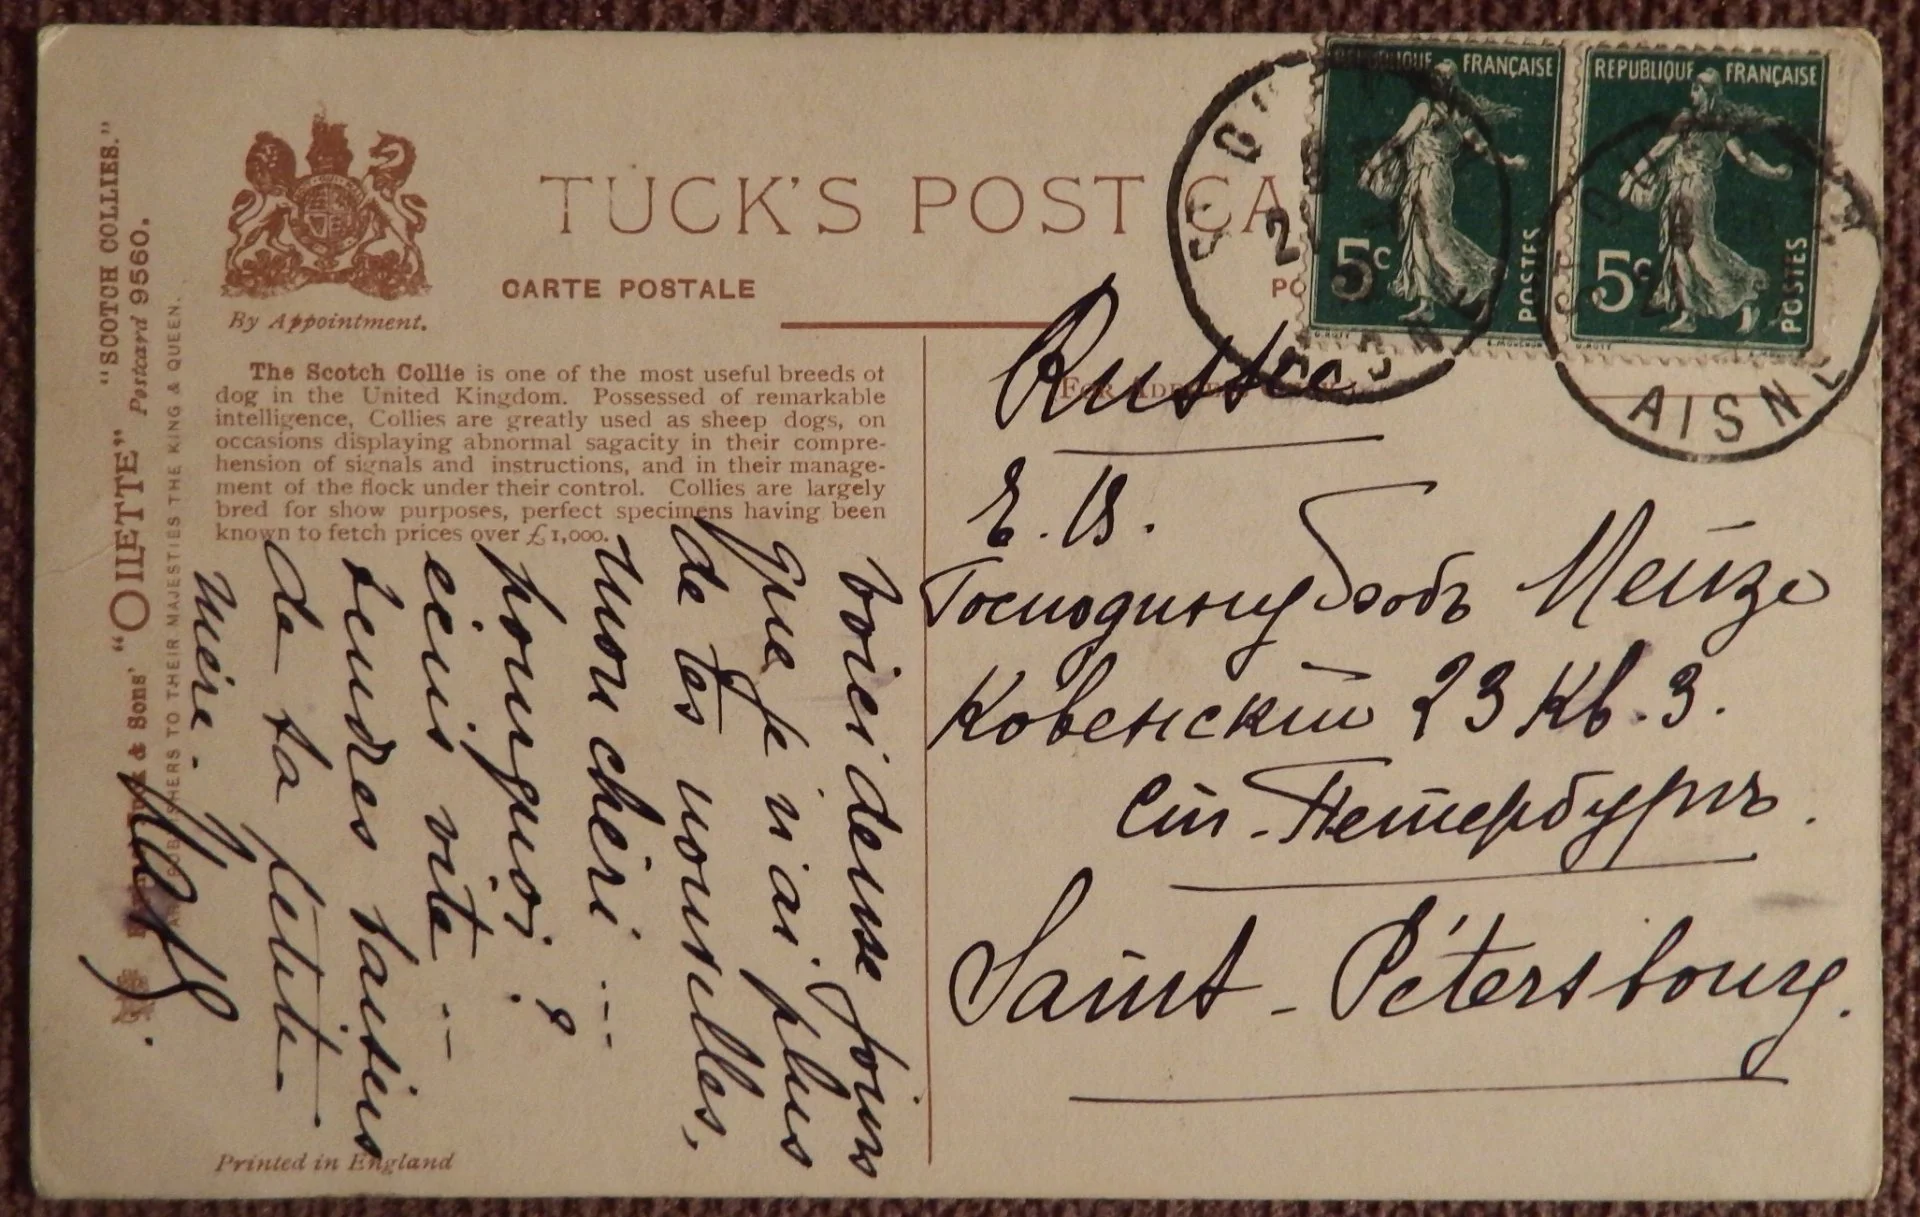 "SCOTCH COLLIES."
"OILETTE" Postcard 9560.
& Sons'
TO THEIR MAJESTIES THE KING & QUEEN.
By Appointment.
TUCK'S POST CA
CARTE POSTALE
The Scotch Collie is one of the most useful breeds of
dog in the United Kingdom. Possessed of remarkable
intelligence, Collies are greatly used as sheep dogs, on
occasions displaying abnormal sagacity in their compre-
hension of signals and instructions, and in their manage-
ment of the flock under their control. Collies are largely
bred for show purposes, perfect specimens having been
known to fetch prices over £1,000.
voici deux jours
que je n'ai plus
de tes nouvelles,
mon chéri ...
pourquoi ?
ecris vite ...
tendres baisers
de ta petite
Printed in England
REPUBLIQUE FRANÇAISE
5c POSTES
REPUBLIQUE FRANÇAISE
5c POSTES
AISNE
Russie
Е. В.
Господину Бобъ Мейзе
Ковенский 23 кв. 3.
Ст-Петербургъ.
Saint-Pétersbourg.